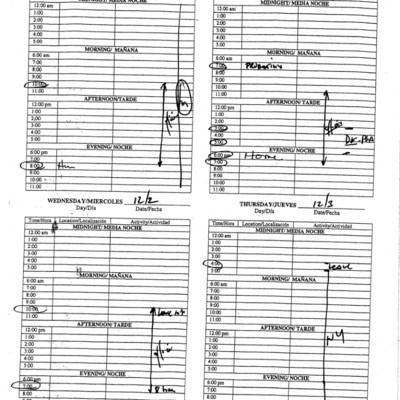 MIDNIGHT/ MEDIA NOCHE
12:00 am
1:00
2:00
3:00
4:00
5:00
MORNING/ MAÑANA
6:00 am
7:00
8:00
9:00
10:00
11:00
AFTERNOON/TARDE
12:00 pm
1:00
2:00
3:00
4:00
5:00
EVENING/ NOCHE
6:00 pm
7:00
8:00
9:00
10:00
11:00
MIDNIGHT/ MEDIA NOCHE
12:00 am
1:00
2:00
3:00
4:00
5:00
MORNING/ MAÑANA
6:00 am
7:00
8:00
9:00
10:00
11:00
AFTERNOON/TARDE
12:00 pm
1:00
2:00
3:00
4:00
5:00
EVENING/ NOCHE
6:00 pm
7:00 Home
8:00
9:00
10:00
11:00
WEDNESDAY/MIERCOLES 12/2
Day/Día Date/Fecha
Time/Hora Location/Localización Activity/Actividad
MIDNIGHT/ MEDIA NOCHE
12:00 am
1:00
2:00
3:00
4:00
5:00
MORNING/ MAÑANA
6:00 am
7:00
8:00
9:00
10:00
11:00
AFTERNOON/ TARDE
12:00 pm
1:00
2:00
3:00
4:00
5:00
EVENING/ NOCHE
6:00 pm
7:00
8:00
9:00
THURSDAY/JUEVES 12/3
Day/Día Date/Fecha
Time/Hora Location/Localización Activity/Actividad
MIDNIGHT/ MEDIA NOCHE
12:00 am
1:00
2:00
3:00
4:00
5:00
MORNING/ MAÑANA
6:00 am
7:00
8:00
9:00
10:00
11:00
AFTERNOON/ TARDE
12:00 pm
1:00
2:00
3:00
4:00
5:00
NY
EVENING/ NOCHE
6:00 pm
7:00
8:00
9:00